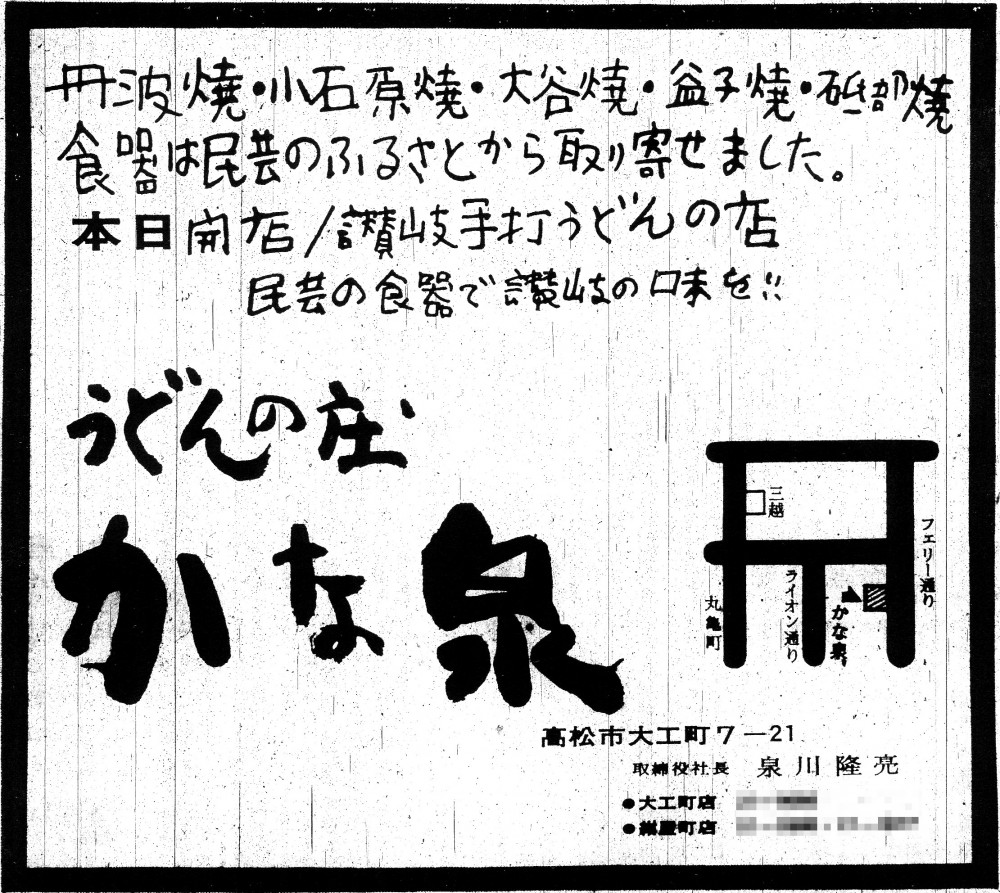 丹波焼・小石原焼・大谷焼・益子焼・砥部焼
食器は民芸のふるさとから取り寄せました。
本日開店/讃岐手打うどんの店
民芸の食器で讃岐の味を!!
うどんの庄
かな泉
三越
フェリー通り
ライオン通り
かな泉
丸亀町
高松市大工町7−21
取締役社長 泉川隆亮
●大工町店
●紺屋町店